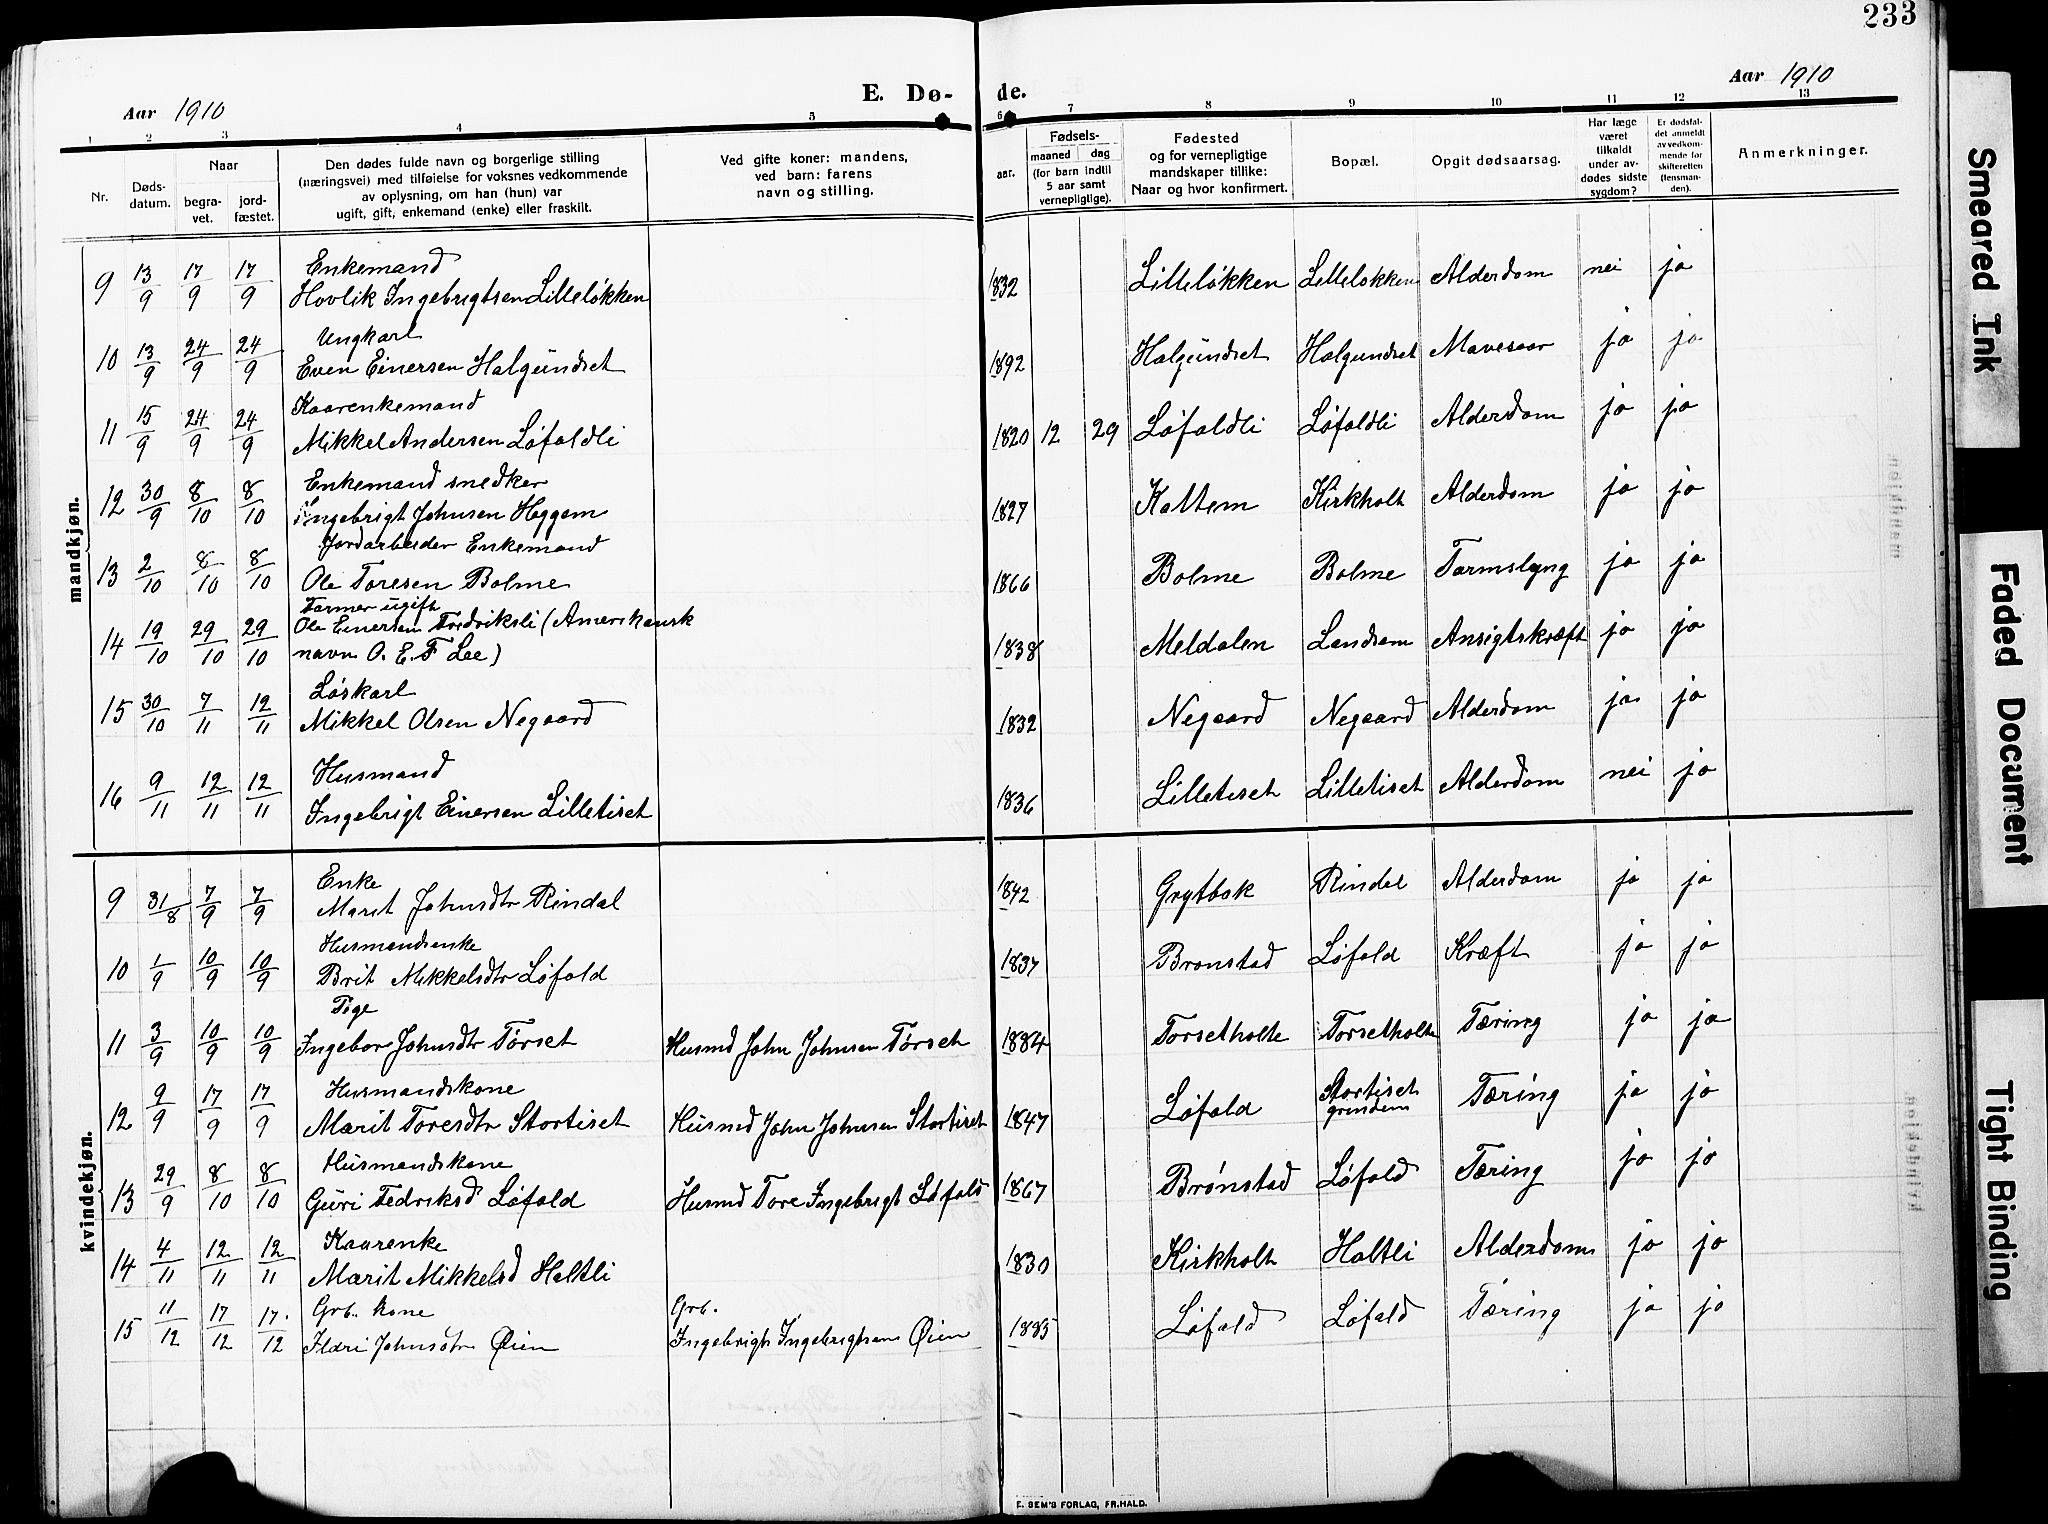 233
Aar 1910
E. Dø-
de.
Aar 1910
1 2 3 4 5 6 7 8 9 10 11 12 13
Nr.
Døds-
datum.
Naar
begra-
vet.
jord-
fæstet.
Den dødes fulde navn og borgerlige stilling
(næringsvei) med tilføielse for voksnes vedkommende
av oplysning, om han (hun) var
ugift, gift, enkemand (enke) eller fraskilt.
Ved gifte koner: mandens,
ved barn: farens
navn og stilling.
aar.
Fødsels-
maaned dag
(for barn indtil
5 aar samt
vernepligtige).
Fødested
og for vernepligtige
mandskaper tillike:
Naar og hvor konfirmert.
Bopæl.
Opgit dødsaarsag.
Har læge
været
tilkaldt
under av-
dødes sidste
sygdom?
Er dødsfal-
det anmeldt
av vedkom-
mende for
skifteretten
(lensman-
den).
Anmerkninger.
mandkjøn.
Enkemand
9 13/9 17/9 17/9 Hovlik Ingebrigtsen Lilleløkken 1832 Lilleløkken Lilleløkken Alderdom nei ja
Ungkarl
10 13/9 24/9 24/9 Even Einersen Halgundset 1892 Halgundset Halgundset Mavesaar ja ja
Kaarenkemand
11 15/9 24/9 24/9 Mikkel Andersen Løfaldli 1820 12 29 Løfaldli Løfaldli Alderdom ja ja
Enkemand snedker
12 30/9 8/10 8/10 Ingebrigt Johnsen Heggem 1827 Kattem Kirkholt Alderdom ja ja
Jordarbeider Enkemand
13 2/10 8/10 8/10 Ole Toresen Bolme 1866 Bolme Bolme Tarmslyng ja ja
Farmer ugift
Ole Einersen Fredriksli (Amerikansk
14 19/10 29/10 29/10 navn O. E. F Lee) 1838 Meldalen Landsem Ansigtskræft ja ja
Løskarl
15 30/10 7/11 12/11 Mikkel Olsen Negaard 1832 Negaard Negaard Alderdom ja ja
Husmand
16 9/11 12/11 12/11 Ingebrigt Einersen Lilletiset 1836 Lilletiset Lilletiset Alderdom nei ja
kvindekjøn.
Enke
9 31/8 7/9 7/9 Marit Johnsdtr Rindal 1842 Grytbak Rindal Alderdom ja ja
Husmandsenke
10 1/9 10/9 10/9 Brit Mikkelsdtr Løfald 1837 Brønstad Løfald Kræft ja ja
Pige
11 3/9 10/9 10/9 Ingebor Johnsdtr Tørset Husmd John Johnsen Tørset 1884 Torsetholte Torsetholte Tæring ja ja
Husmandskone
12 9/9 17/9 17/9 Marit Toresdtr Stortiset Husmd John Johnsen Stortiset 1847 Løfald Stortiset
grinden Tæring ja ja
Husmandskone
13 29/9 8/10 8/10 Guri Fedriksd Løfald Husmd Tore Ingebrigt Løfald 1867 Brønstad Løfald Tæring ja ja
Kaarenke
14 4/11 12/11 12/11 Marit Mikkelsd Holtli 1830 Kirkholt Holtli Alderdom ja ja
Grb. kone Grb.
15 11/12 17/12 17/12 Ildri Johnsdtr Øien Ingebrigt Ingebrigtsen Øien 1885 Løfald Løfald Tæring ja ja
E. SEM'S FORLAG, FR.HALD.
Smeared Ink
Faded Document
Tight Binding